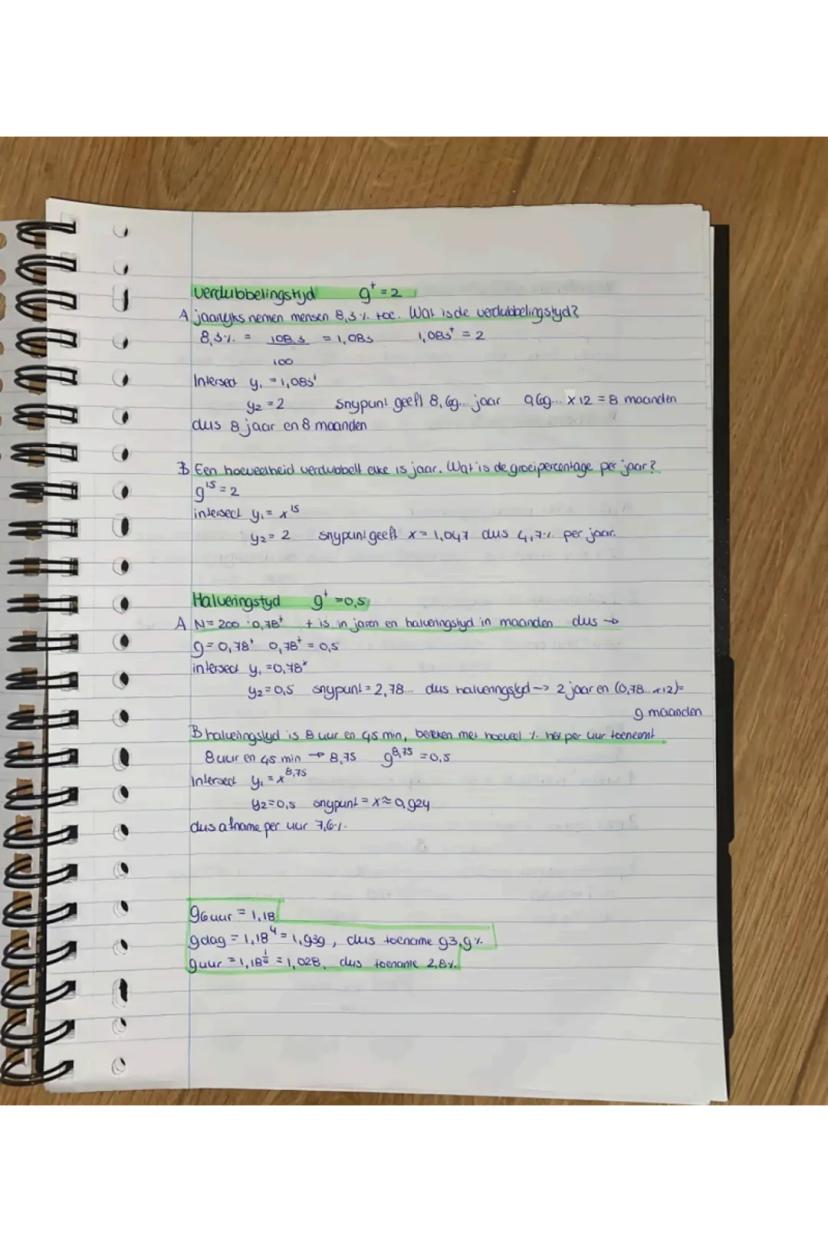 verdubbelingstyd g^t = 2
A jaarlyks nemen mensen 8,3 % toe. Wat is de verdubbelingstyd?
8,3 % = 108,3 = 1,083 1,083^t = 2
100
Intersect y₁ = 1,083^t
y₂ = 2 snypunt geeft 8,69... jaar 0,69... x 12 = 8 maanden
dus 8 jaar en 8 maanden
B Een hoeveelheid verdubbelt elke 15 jaar. Wat is de groeipercentage per jaar?
g^15 = 2
intersect y₁ = x^15
y₂ = 2 snypunt geeft x = 1,047 dus 4,7 % per jaar.
Halveringstyd g^t = 0,5
A N = 200 · 0,78^t t is in jaren en halveringstyd in maanden dus →
g = 0,78^t 0,78^t = 0,5
intersect y₁ = 0,78^x
y₂ = 0,5 snypunt = 2,78... dus halveringstyd → 2 jaar en (0,78... x 12) =
9 maanden
B halveringstyd is 8 uur en 45 min, bereken met hoeveel % het per uur toeneemt
8 uur en 45 min → 8,75 g^8,75 = 0,5
Intersect y₁ = x^8,75
y₂ = 0,5 snypunt = x ≈ 0,924
dus afname per uur 7,6 %.
g6 uur = 1,18
gdag = 1,18^4 = 1,939, dus toename 93,9 %
guur = 1,18^1/6 = 1,028, dus toename 2,8 %.